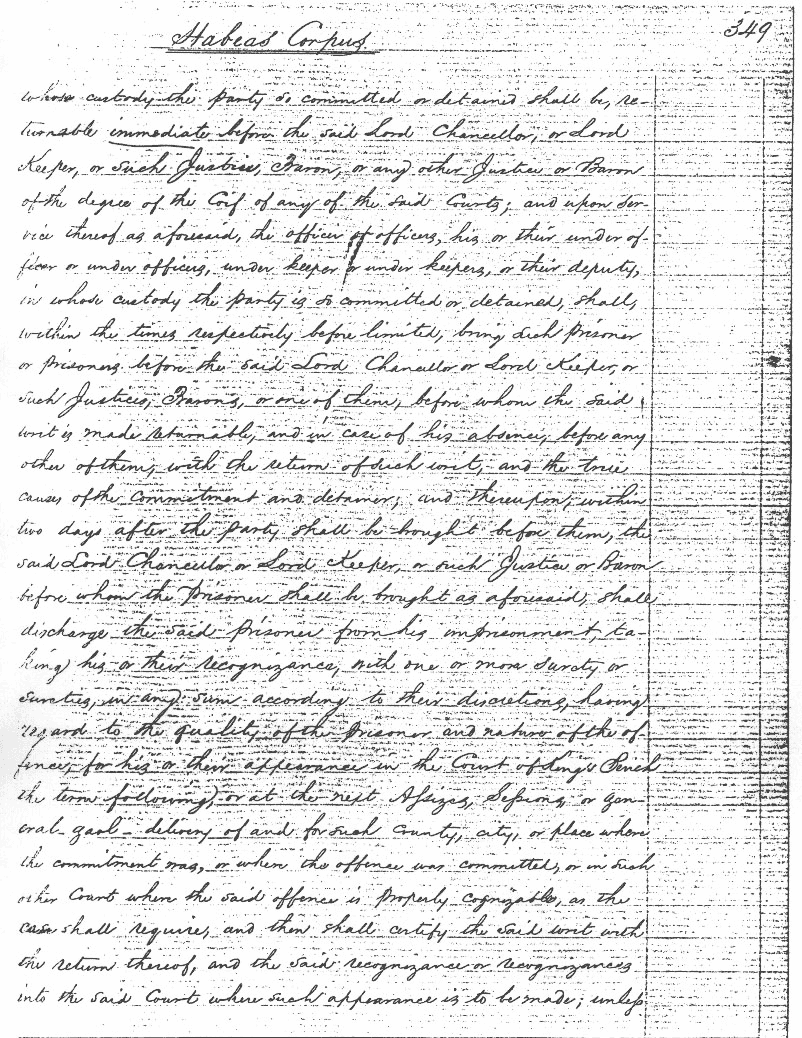 Habeas Corpus
349
whose custody the party so committed or detained shall be, re-
turnable immediate before the said Lord Chancellor, or Lord
Keeper, or such Justice, Baron, or any other Justice or Baron
of the degree of the Coif of any of the said Courts; and upon ser-
vice thereof as aforesaid, the officer or officers, his or their under of-
ficer or under officers, under keeper or under keepers, or their deputy,
in whose custody the party is so committed or detained, shall,
within the times respectively before limited, bring such prisoner
or prisoners before the said Lord Chancellor or Lord Keeper, or
such Justices, Barons, or one of them, before whom the said
writ is made returnable, and in case of his absence, before any
other of them, with the return of such writ, and the true
causes of the commitment and detainer; and thereupon, within
two days after the party shall be brought before them, the
said Lord Chancellor or Lord Keeper, or such Justice or Baron
before whom the Prisoner shall be brought as aforesaid, shall
discharge the said Prisoner from his imprisonment, ta-
king his or their recognizance, with one or more surety or
sureties, in any sum according to their discretions, having
regard to the quality of the Prisoner and nature of the of-
fence, for his or their appearance in the Court of King's Bench
the term following, or at the next Assizes, Sessions, or gen-
eral-gaol-delivery of and for such County, city, or place where
the commitment was, or where the offence was committed, or in such
other Court where the said offence is properly cognizable, as the
case shall require, and then shall certify the said writ with
the return thereof, and the said recognizance or recognizances
into the said Court where such appearance is to be made; unless